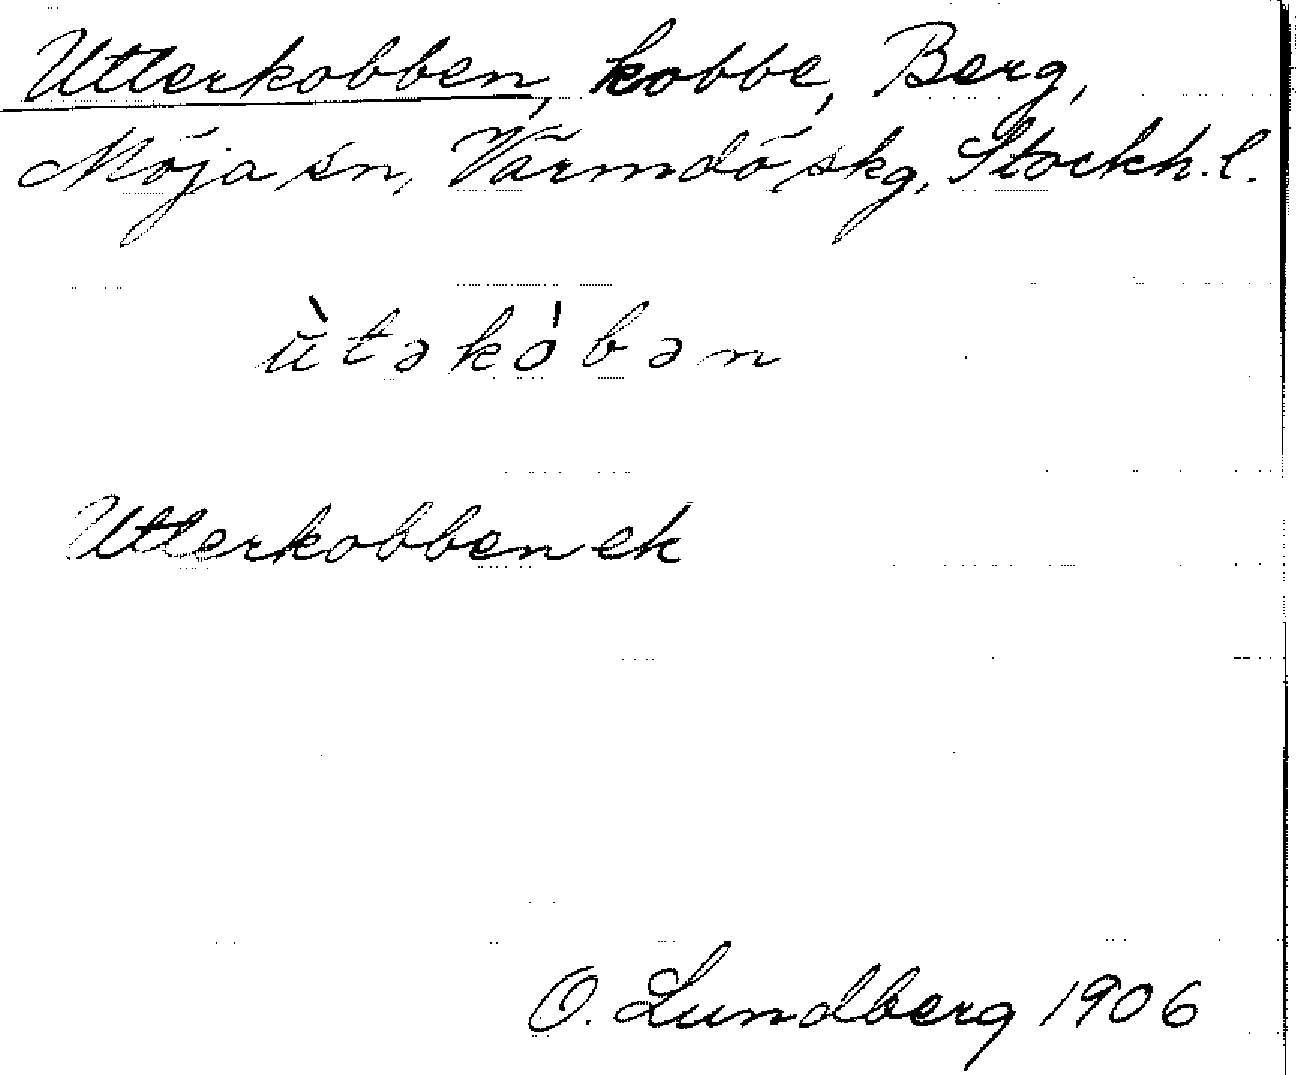 Utterkobben, kobbe, Berg,
Möja sn, Värmdö skg, Stockh. l.
ùtəkȯ́bən
Utterkobben ek
O. Lundberg 1906